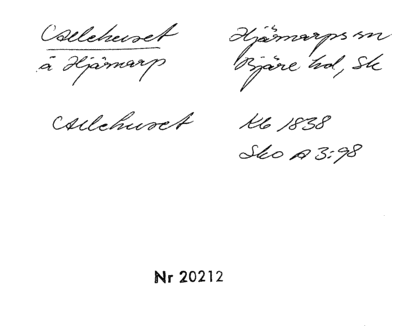 å Hjärnarp
Hjärnarps sn
Bjäre hd, Sk
Kb 1838
Sko A 3:98
Nr 20212